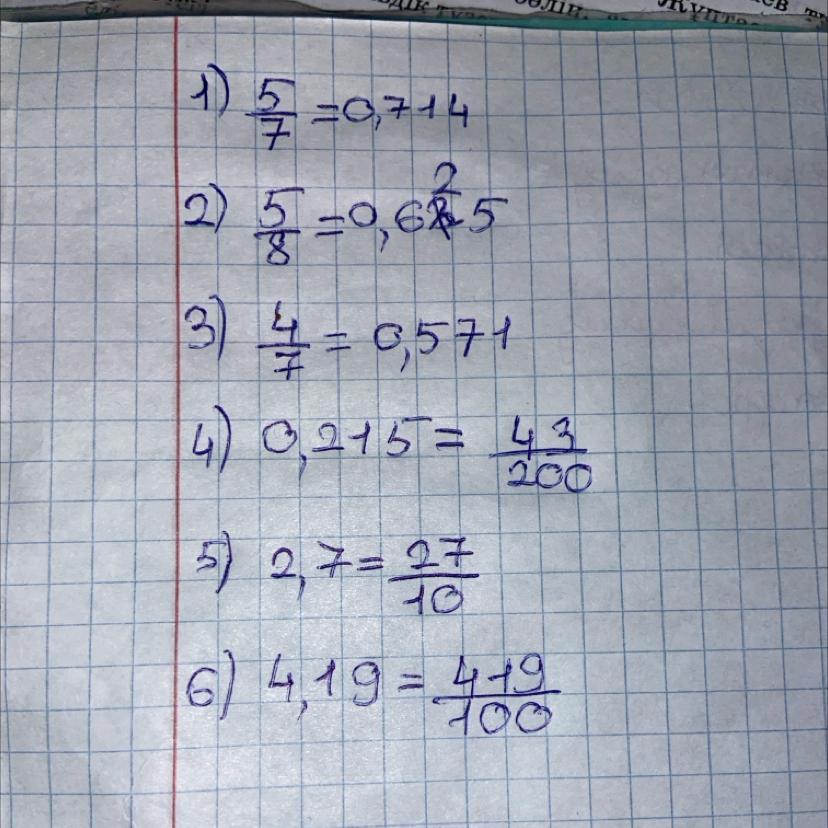 Жұптас
1) 5/7 = 0,714
2) 5/8 = 0,625
3) 4/7 = 0,571
4) 0,215 = 43/200
5) 2,7 = 27/10
6) 4,19 = 419/100